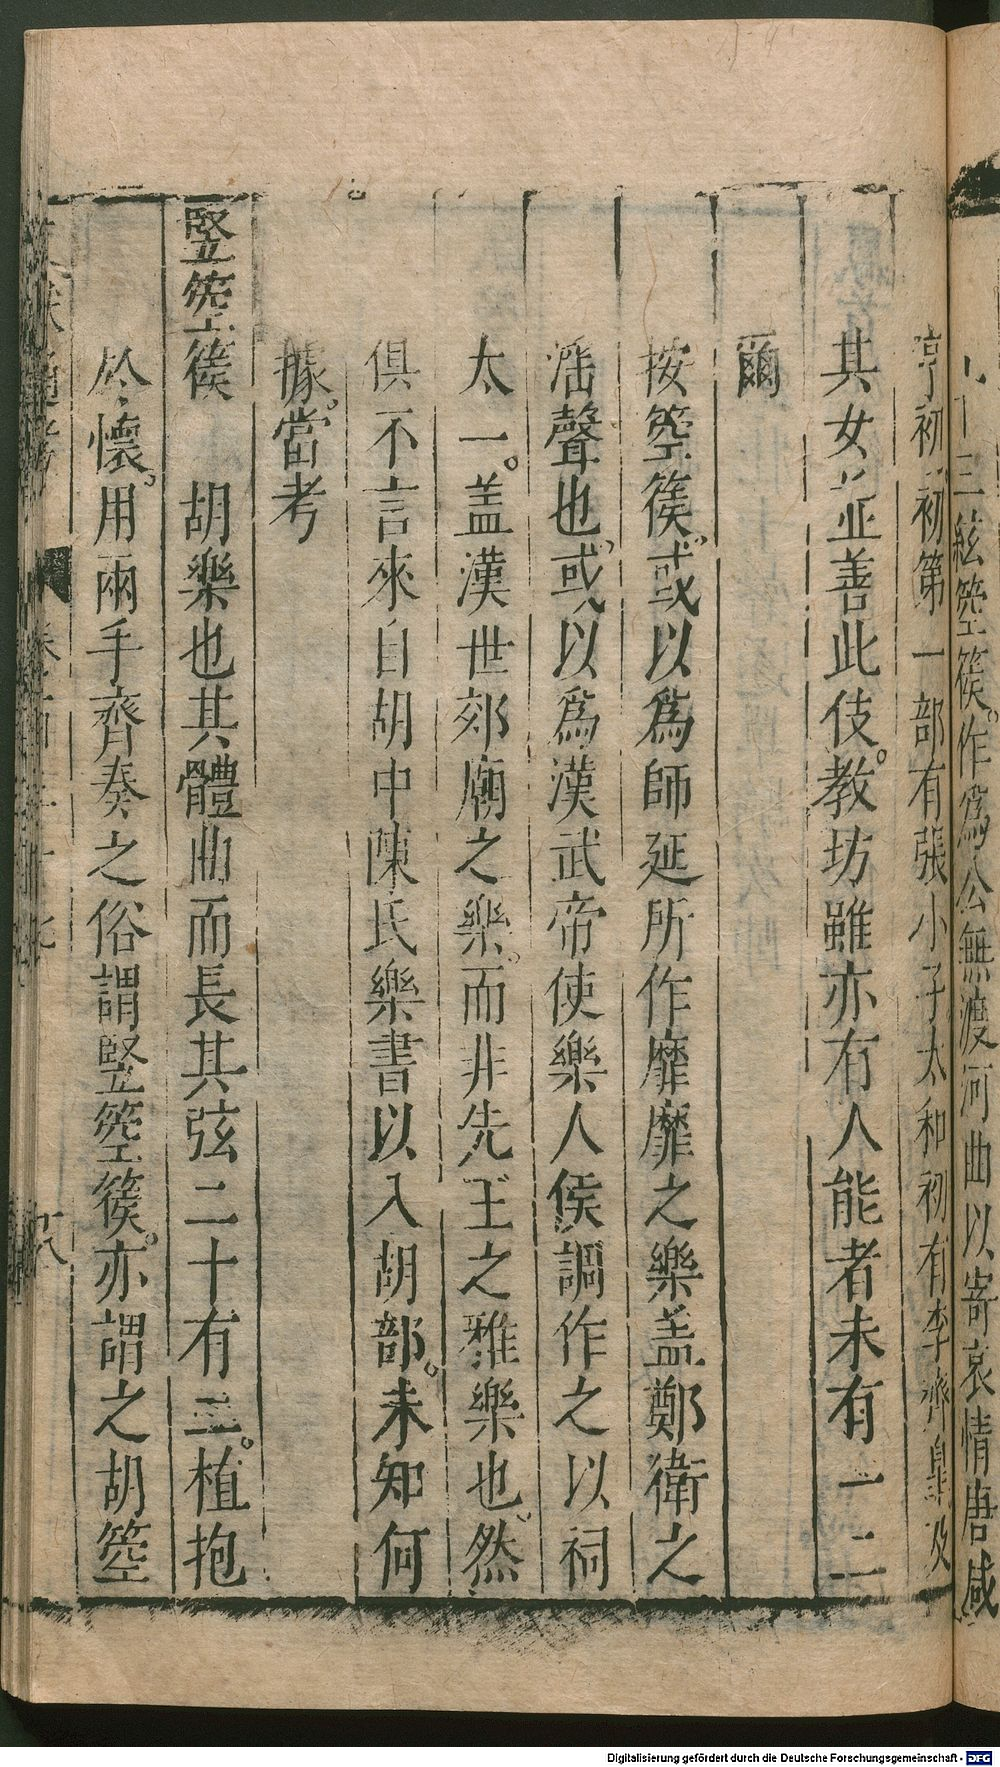 十三絃箜篌作爲公無渡河曲以寄哀情唐咸
亨初初第一部有張小子太和初有李齊皐及
其女並善此伎。教坊雖亦有人能者未有一二
爾
按箜篌或以爲師延所作靡靡之樂盖鄭衛之
滛聲也或以爲漢武帝使樂人侯調作之以祠
太一。盖漢世郊廟之樂。而非先王之雅樂也。然
俱不言來自胡中陳氏樂書以入胡部。未知何
據。當考
竪箜篌　胡樂也其體曲而長其弦二十有三。植抱
於懷。用兩手齊奏之俗謂竪箜篌。亦謂之胡箜
通考
十八
Digitalisierung gefördert durch die Deutsche Forschungsgemeinschaft - DFG